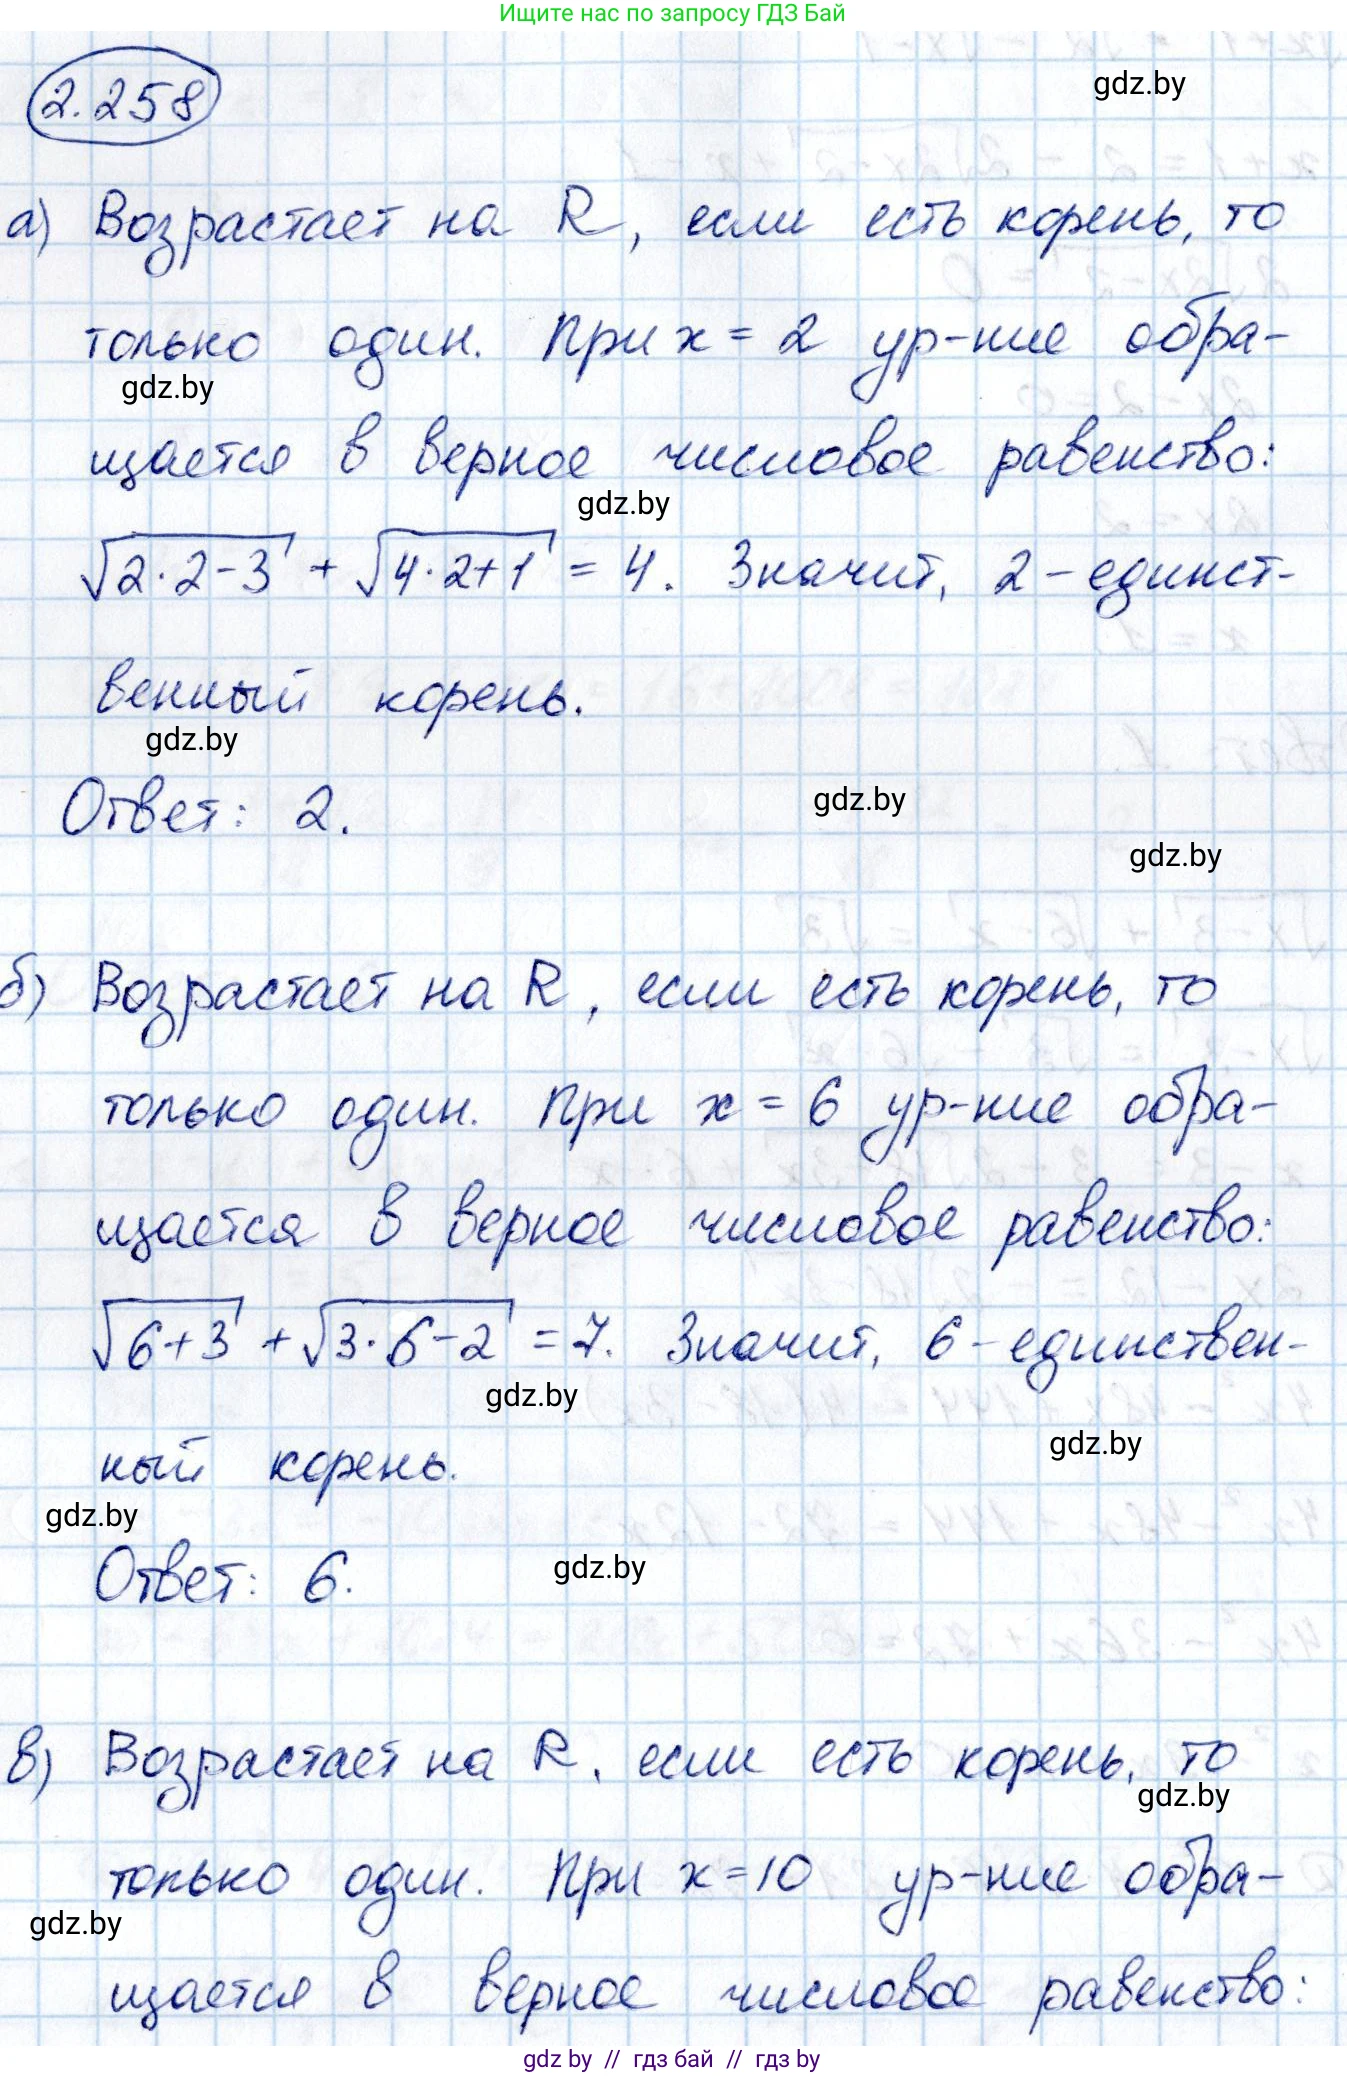 Ищите нас по запросу ГДЗ Бай
2.258
gdz.by
а) Возрастает на R, если есть корень, то
только один. При x = 2 ур-ние обра-
gdz.by
щается в верное числовое равенство:
gdz.by
√(2·2-3) + √(4·2+1) = 4. Значит, 2 - единст-
венный корень.
gdz.by
Ответ: 2.
gdz.by
gdz.by
б) Возрастает на R, если есть корень, то
только один. При x = 6 ур-ние обра-
щается в верное числовое равенство:
√(6+3) + √(3·6-2) = 7. Значит, 6 - единствен-
gdz.by
gdz.by
ный корень.
gdz.by
Ответ: 6.
gdz.by
в) Возрастает на R, если есть корень, то
gdz.by
только один. При x=10 ур-ние обра-
gdz.by
щается в верное числовое равенство:
gdz by // гдз бай // гдз by